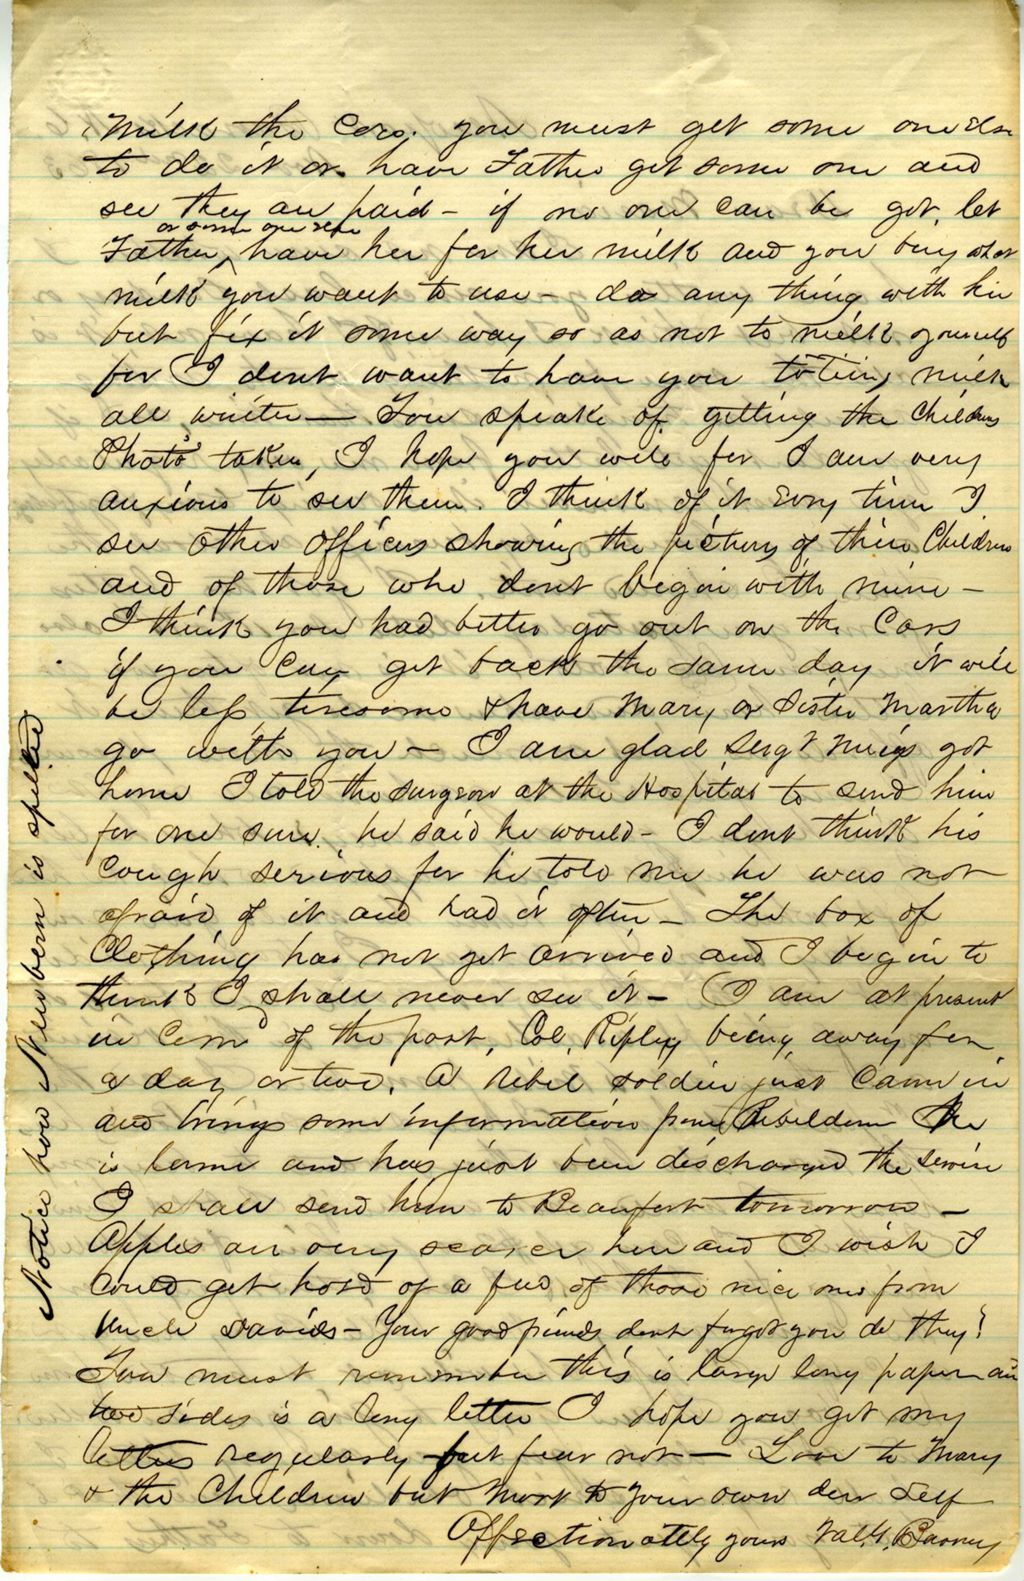 Milk the Cow. you must get some one else
to do it or have Father get some one and
see they are paid – if no one can be got, let
or some one else
Father, have her for her milk and you buy what
milk you want to use – do any thing with her
but fix it some way so as not to milk yourself
for I dont want to have you milk
all winter – You speak of getting the Childrens
Photo's taken, I hope you will for I am very
anxious to see them. I think of it Every time I
see other officers showing the pictures of their Children
and of those who dont begin with mine –
I think you had better go out on the Cars
if you can get back the same day it will
be less tiresome & have Mary or Sister Martha
go with you – I am glad Sergt got
home I told the surgeon at the Hospital to send him
for one sure. he said he would – I dont think his
Cough serious for he told me he was not
afraid of it and had it often – The box of
Clothing has not yet arrived and I begin to
think I shall never see it – I am at present
in Com of the post, Col. Ripley being away for
a day or two. A Rebel soldier just Came in
and brings some information from Rebeldom He
is lame and has just been discharged the service
I shall send him to Beaufort tomorrow –
Apples are very scarce here and I wish I
Could get hold of a few of those nice ones from
Uncle Davids – Your good friends dont forget you do they?
You must remember this is large long paper and
two sides is a long letter I hope you get my
letters regularly but fear not – Love to Mary
& the Children but most to your own dear Self
Affectionately yours Val. G. Barney
Notice how Newbern is spelled